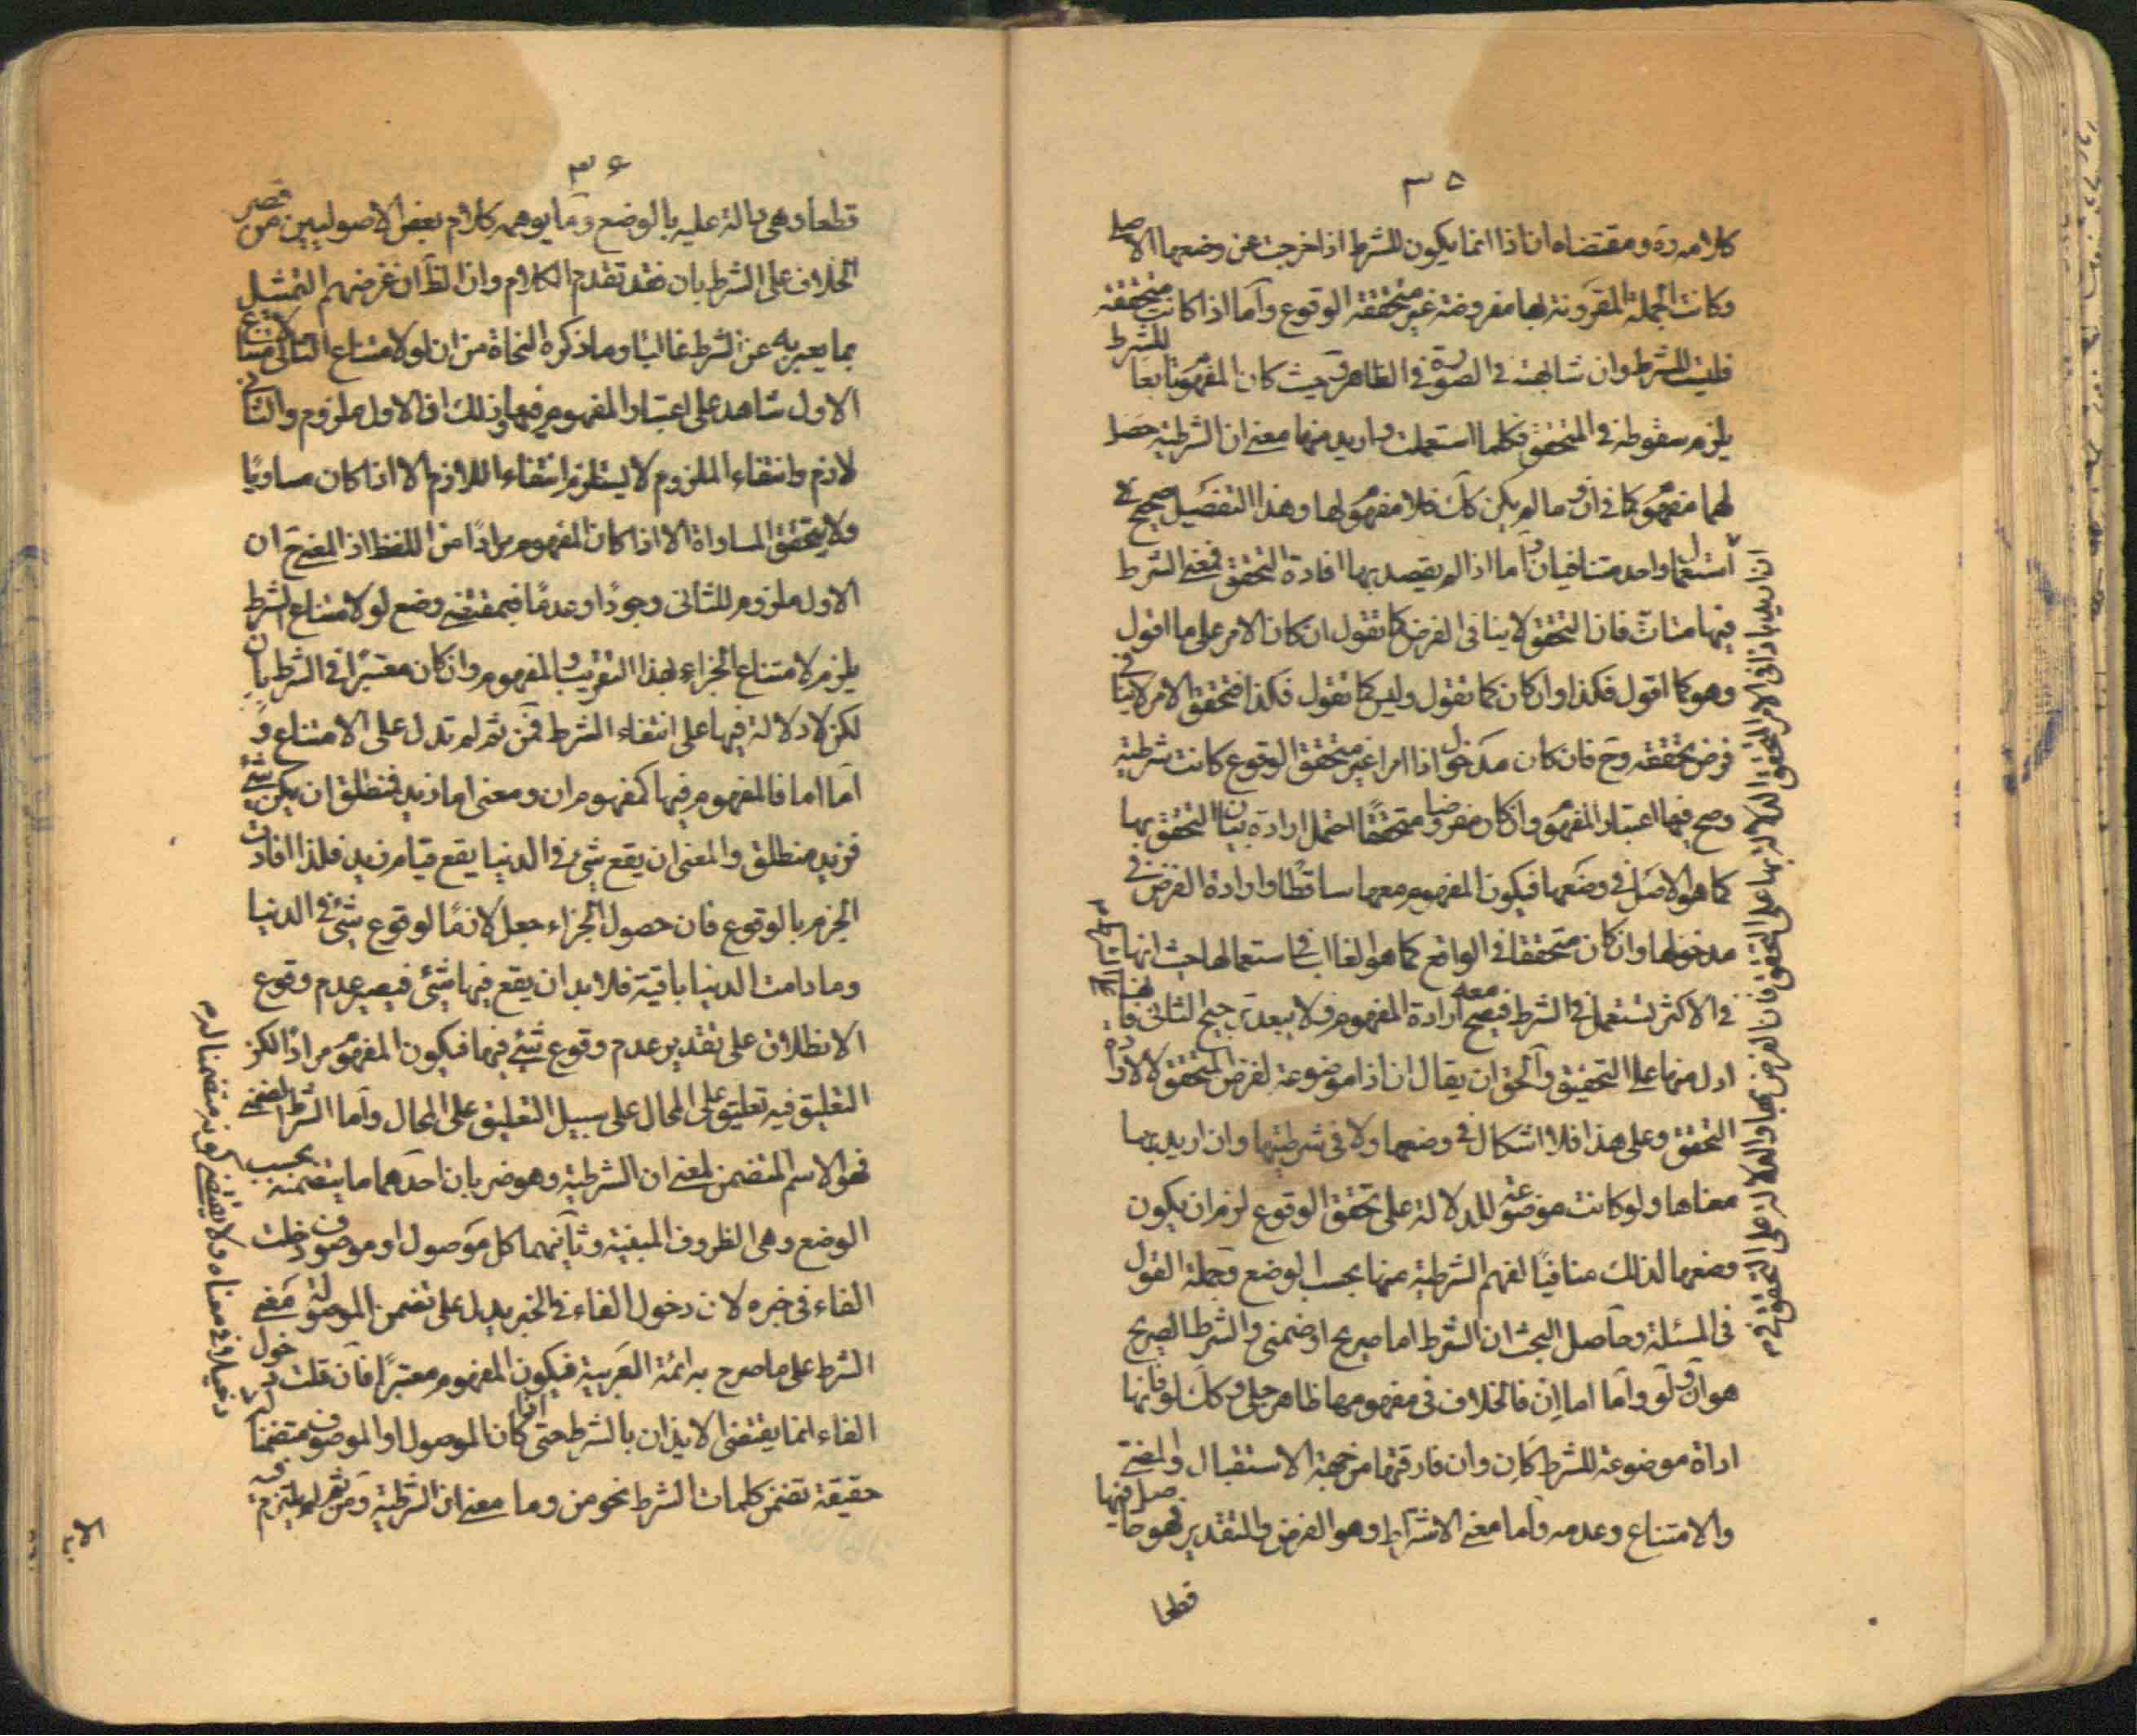 ٣٥
كلامه ره ومقتضاه ان اذا انما يكون للشرط اذا خرجت عن وضعها الاصلي
وكانت الجملة المقرونة بها مفروضة غير متحققة الوقوع وأما اذا كانت متحققة
فليست للشرط وان شابهته في الصورة في الظاهر وحيث كان المفهوم تابعا للشرط
يلزم سقوطه في المتحقق فكلما استعملت واريد منها معنى ان الشرطية حصل
لها مفهوم كما في ان وما لم يكن كك فلا مفهوم لها وهذا التفصيل صحيح لا
استعمال واحد متنافيان وأما اذا لم يقصد بها افادة التحقق فمعنى الشرط
فيها متأت فان التحقق لا ينافى الفرض كما تقول ان كان الامر على ما اقول
وهو كما اقول فكذا وان كان كما تقول وليس كما تقول فكذا فتحقق الامر لا ينافي
فرض تحققه وح فان كان مدخول اذا امرا غير متحقق الوقوع كانت شرطية
وصح فيها اعتبار المفهوم وان كان مفروضا متحققا احتمل ارادة بيان التحقق بها
كما هو الاصل في وضعها فيكون المفهوم معها ساقطا وارادة الفرض في
مدخولها وان كان متحققا في الواقع كما هو الغالب في استعمالها حيث انها
في الاكثر تستعمل في الشرط فيصح معه ارادة المفهوم ولا يبعد ترجيح الثانى
ادل منها على التحقيق والحق ان يقال ان اذا موضوعة لفرض المتحقق لا لارادة
التحقق وعلى هذا فلا اشكال في وضعها ولا في شرطيتها وان اريد بها
معناها ولو كانت موضوعة للدلالة على تحقق الوقوع لزم ان يكون
وضعها لذلك منافيا لفهم الشرطية منها بحسب الوضع وجملة القول
فى المسئلة وحاصل البحث ان الشرط اما صريح او ضمنى والشرط الصريح
هو ان ولو وأما اما ان فالخلاف فى مفهومها ظاهر جلي وكك لو فانها
اداة موضوعة للشرط كان وان فارقتها من جهة الاستقبال والمضي
والامتناع وعدمه وأما معنى الاشتراط وهو الفرض والتقدير فهو حاصل فيها
قطعا
ان اريد باذا في الامر المتحقق الدلالة بها على التحقق فان الفرض بها والدلالة على التحقق في
٣٦
قطعا وهى دالة عليه بالوضع وما يوهمه كلام بعض الاصوليين من حصر
الخلاف على الشرط بان فقد تقدم الكلام وان الظ ان غرضهم التمثيل
بما يعبر به عن الشرط غالبا وما ذكره النحاة من ان لو لامتناع الثانى لامتناع
الاول شاهد على اعتبار المفهوم فيها وذلك ان الاول ملزوم والثاني
لازم وانتفاء الملزوم لا يستلزم انتفاء اللازم الا اذا كان مساويا
ولا يتحقق المساواة الا اذا كان المفهوم مرادا من اللفظ اذ المعنى ح ان
الاول ملزوم للثانى وجودا وعدما فبمقتضى وضع لو لامتناع الشرط
يلزم لامتناع الجزاء بهذا التقريب والمفهوم وان كان معتبرا في الشرط بان
لكن لا دلالة فيها على انتفاء الشرط فمن ثم لم تدل على الامتناع و
أما اما فالمفهوم فيها كمفهوم ان ومعنى اما زيد فمنطلق ان يكن شئ
فزيد منطلق والمعنى ان يقع شئ في الدنيا يقع قيام زيد فلذا افادت
الجزم بالوقوع فان حصول الجزاء جعل لازما لوقوع شئ في الدنيا
وما دامت الدنيا باقية فلا بد ان يقع فيها شئ فيصير عدم وقوع
الانطلاق على تقدير عدم وقوع شئ فيها فيكون المفهوم مرادا لكن
التعليق فيه تعليق على المحال على سبيل التعليق على المحال وأما الشرط الضمني
فهو الاسم المتضمن لمعنى ان الشرطية وهو ضربان احدهما ما يتضمنه بحسب
الوضع وهى الظروف المبنية وثانيهما كل موصول او موصوف دخلت
الفاء فى خبره لان دخول الفاء في الخبر يدل على تضمن الموصولة معنى
الشرط على ما صرح به ائمة العربية فيكون المفهوم معتبرا فان قلت دخول
الفاء انما يقتضى الايذان بالشرط حتى كان الموصول او الموصوف متضمنا
حقيقة تضمن كلمات الشرط نحو من وما معنى ان الشرطية ومن ثم لم يلتزم فيه